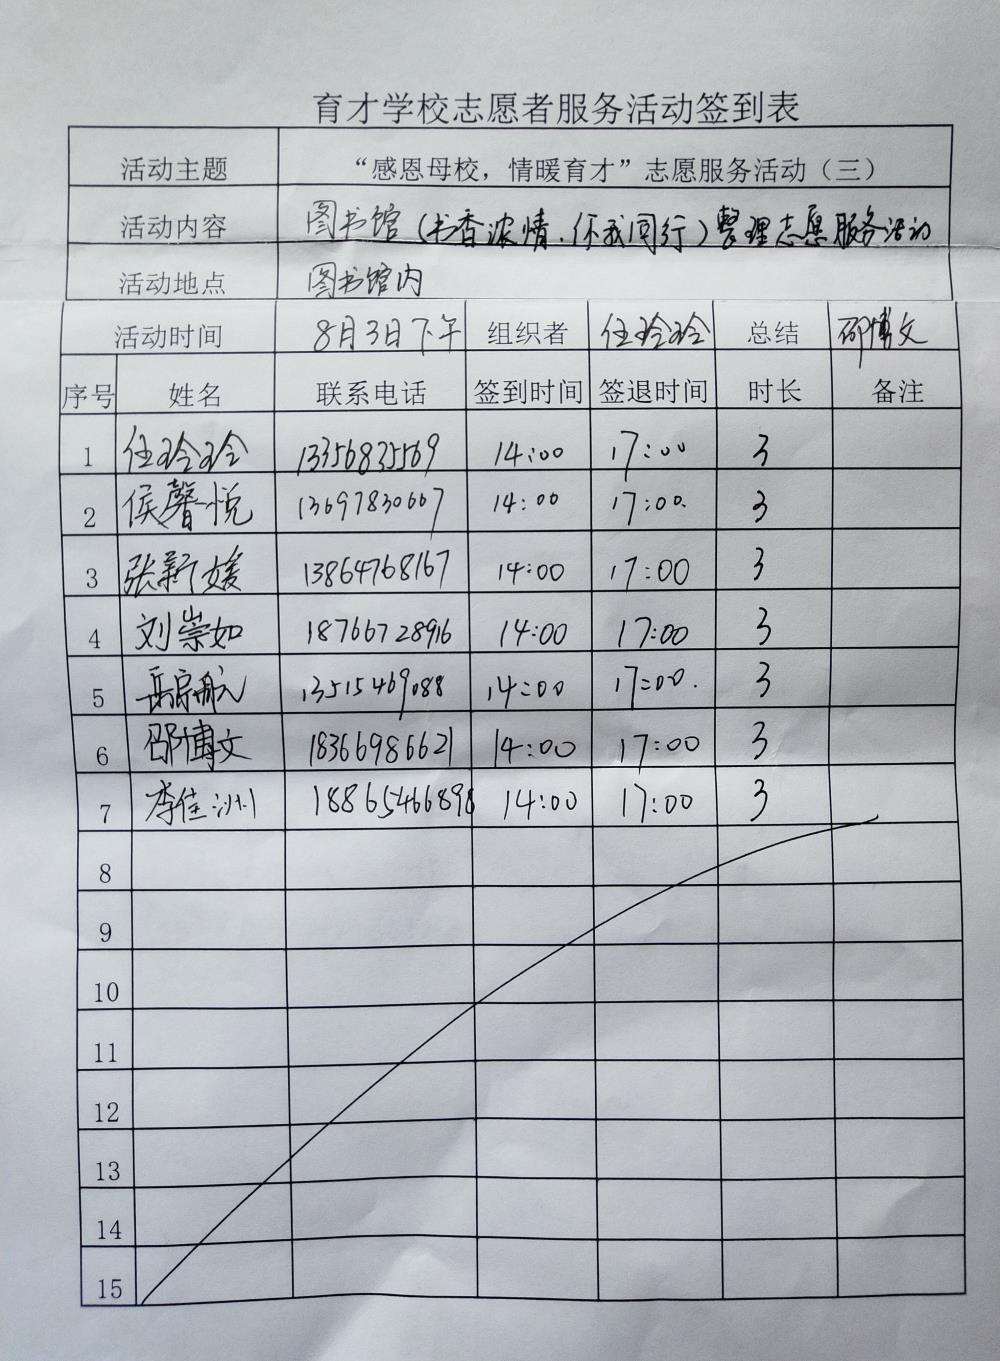 育才学校志愿者服务活动签到表
活动主题 “感恩母校，情暖育才”志愿服务活动（三）
活动内容 图书馆（书香浓情、伱我同行）整理志愿服务活动
活动地点 图书馆内
活动时间 8月3日下午 组织者 任玲玲 总结 邵博文
序号 姓名 联系电话 签到时间 签退时间 时长 备注
1 任玲玲 13356835569 14:00 17:00 3
2 侯馨悦 13697830667 14:00 17:00. 3
3 张新媛 13864768167 14:00 17:00 3
4 刘崇如 18766728916 14:00 17:00 3
5 岳宗航 13515469088 14:00 17:00. 3
6 邵博文 18366986621 14:00 17:00 3
7 李佳洲 18865466898 14:00 17:00 3
8
9
10
11
12
13
14
15